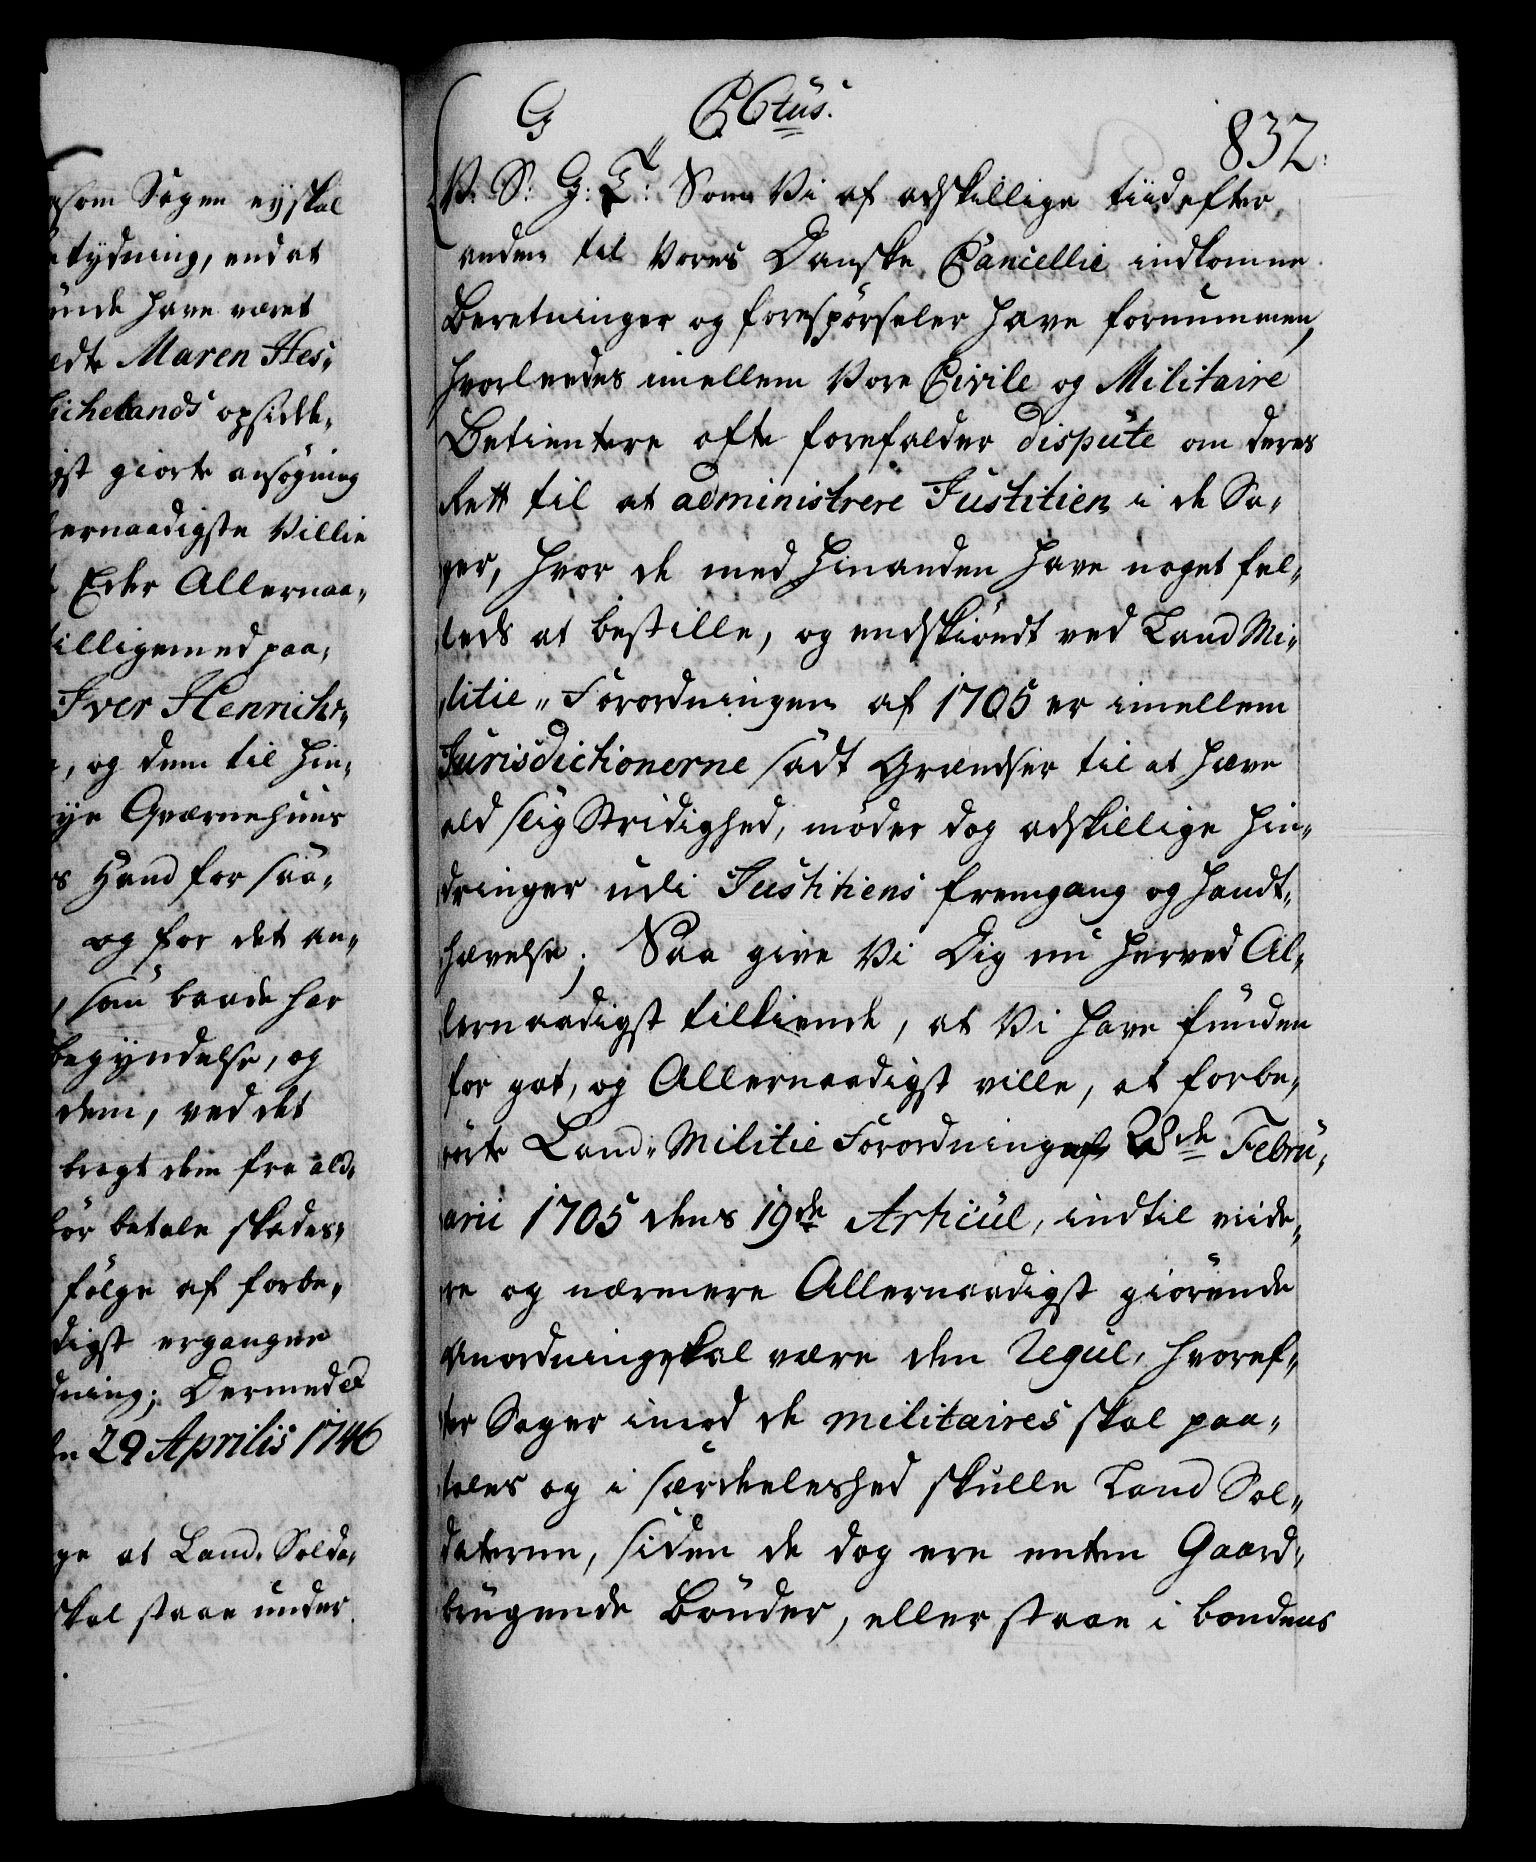 som Sagen ey skal
tydning, end at
unde have været
edte Maren Hes-
lichelands opsidde-
gst giorte ansögning
ernaadigste Villie
Eder Allernaa-
tilligemed paa-
Iver Henrichs-
, og dem til hin-
ye Qværnehuus
s Haand for saa-
og for det an-
, som baade har
begyndelse, og
dem, ved det
bragt dem fra ald-
bör betale skades-
fölge af forbe-
digst ergangne
dning; Dermed &
en 29 Aprilis 1746
ge at Land-Solda-
skal staae under
G C6tus.
832.
V: S: G: T: Som Vi af adskillige tiid efter
anden til Vores Danske Cancellie indkomne
Beretninger og forespörseler have fornummen,
hvorleedes imellem Vore Civile og Militaire
Betientere ofte forefalder dispute om deres
Rett til at administrere Justitien i de Sa-
ger, hvor de med hinanden have noget fel-
leds at bestille, og endskiöndt ved Land Mi-
litie-Forordningen af 1705 er imellem
Jurisdictionerne sadt Grændser til at hæve
ald slig Stridighed, möder dog adskillige hin-
dringer udi Justitiens fremgang og handt-
hævelse; Saa give Vi Dig nu herved Al-
lernaadigst tilkiende, at Vi have funden
for got, og Allernaadigst ville, at forbe-
rörte Land-Militie Forordning af 28de Febru-
arii 1705 dens 19de Articul, indtil viide-
re og nærmere Allernaadigst giörende
Anordning skal være den Regul, hvoref-
ter Sager imod de militaires skal paa-
tales og i særdeleshed skulle Land Sol-
daterne, siden de dog ere enten Gaard-
brugende Bönder, eller staae i bondens